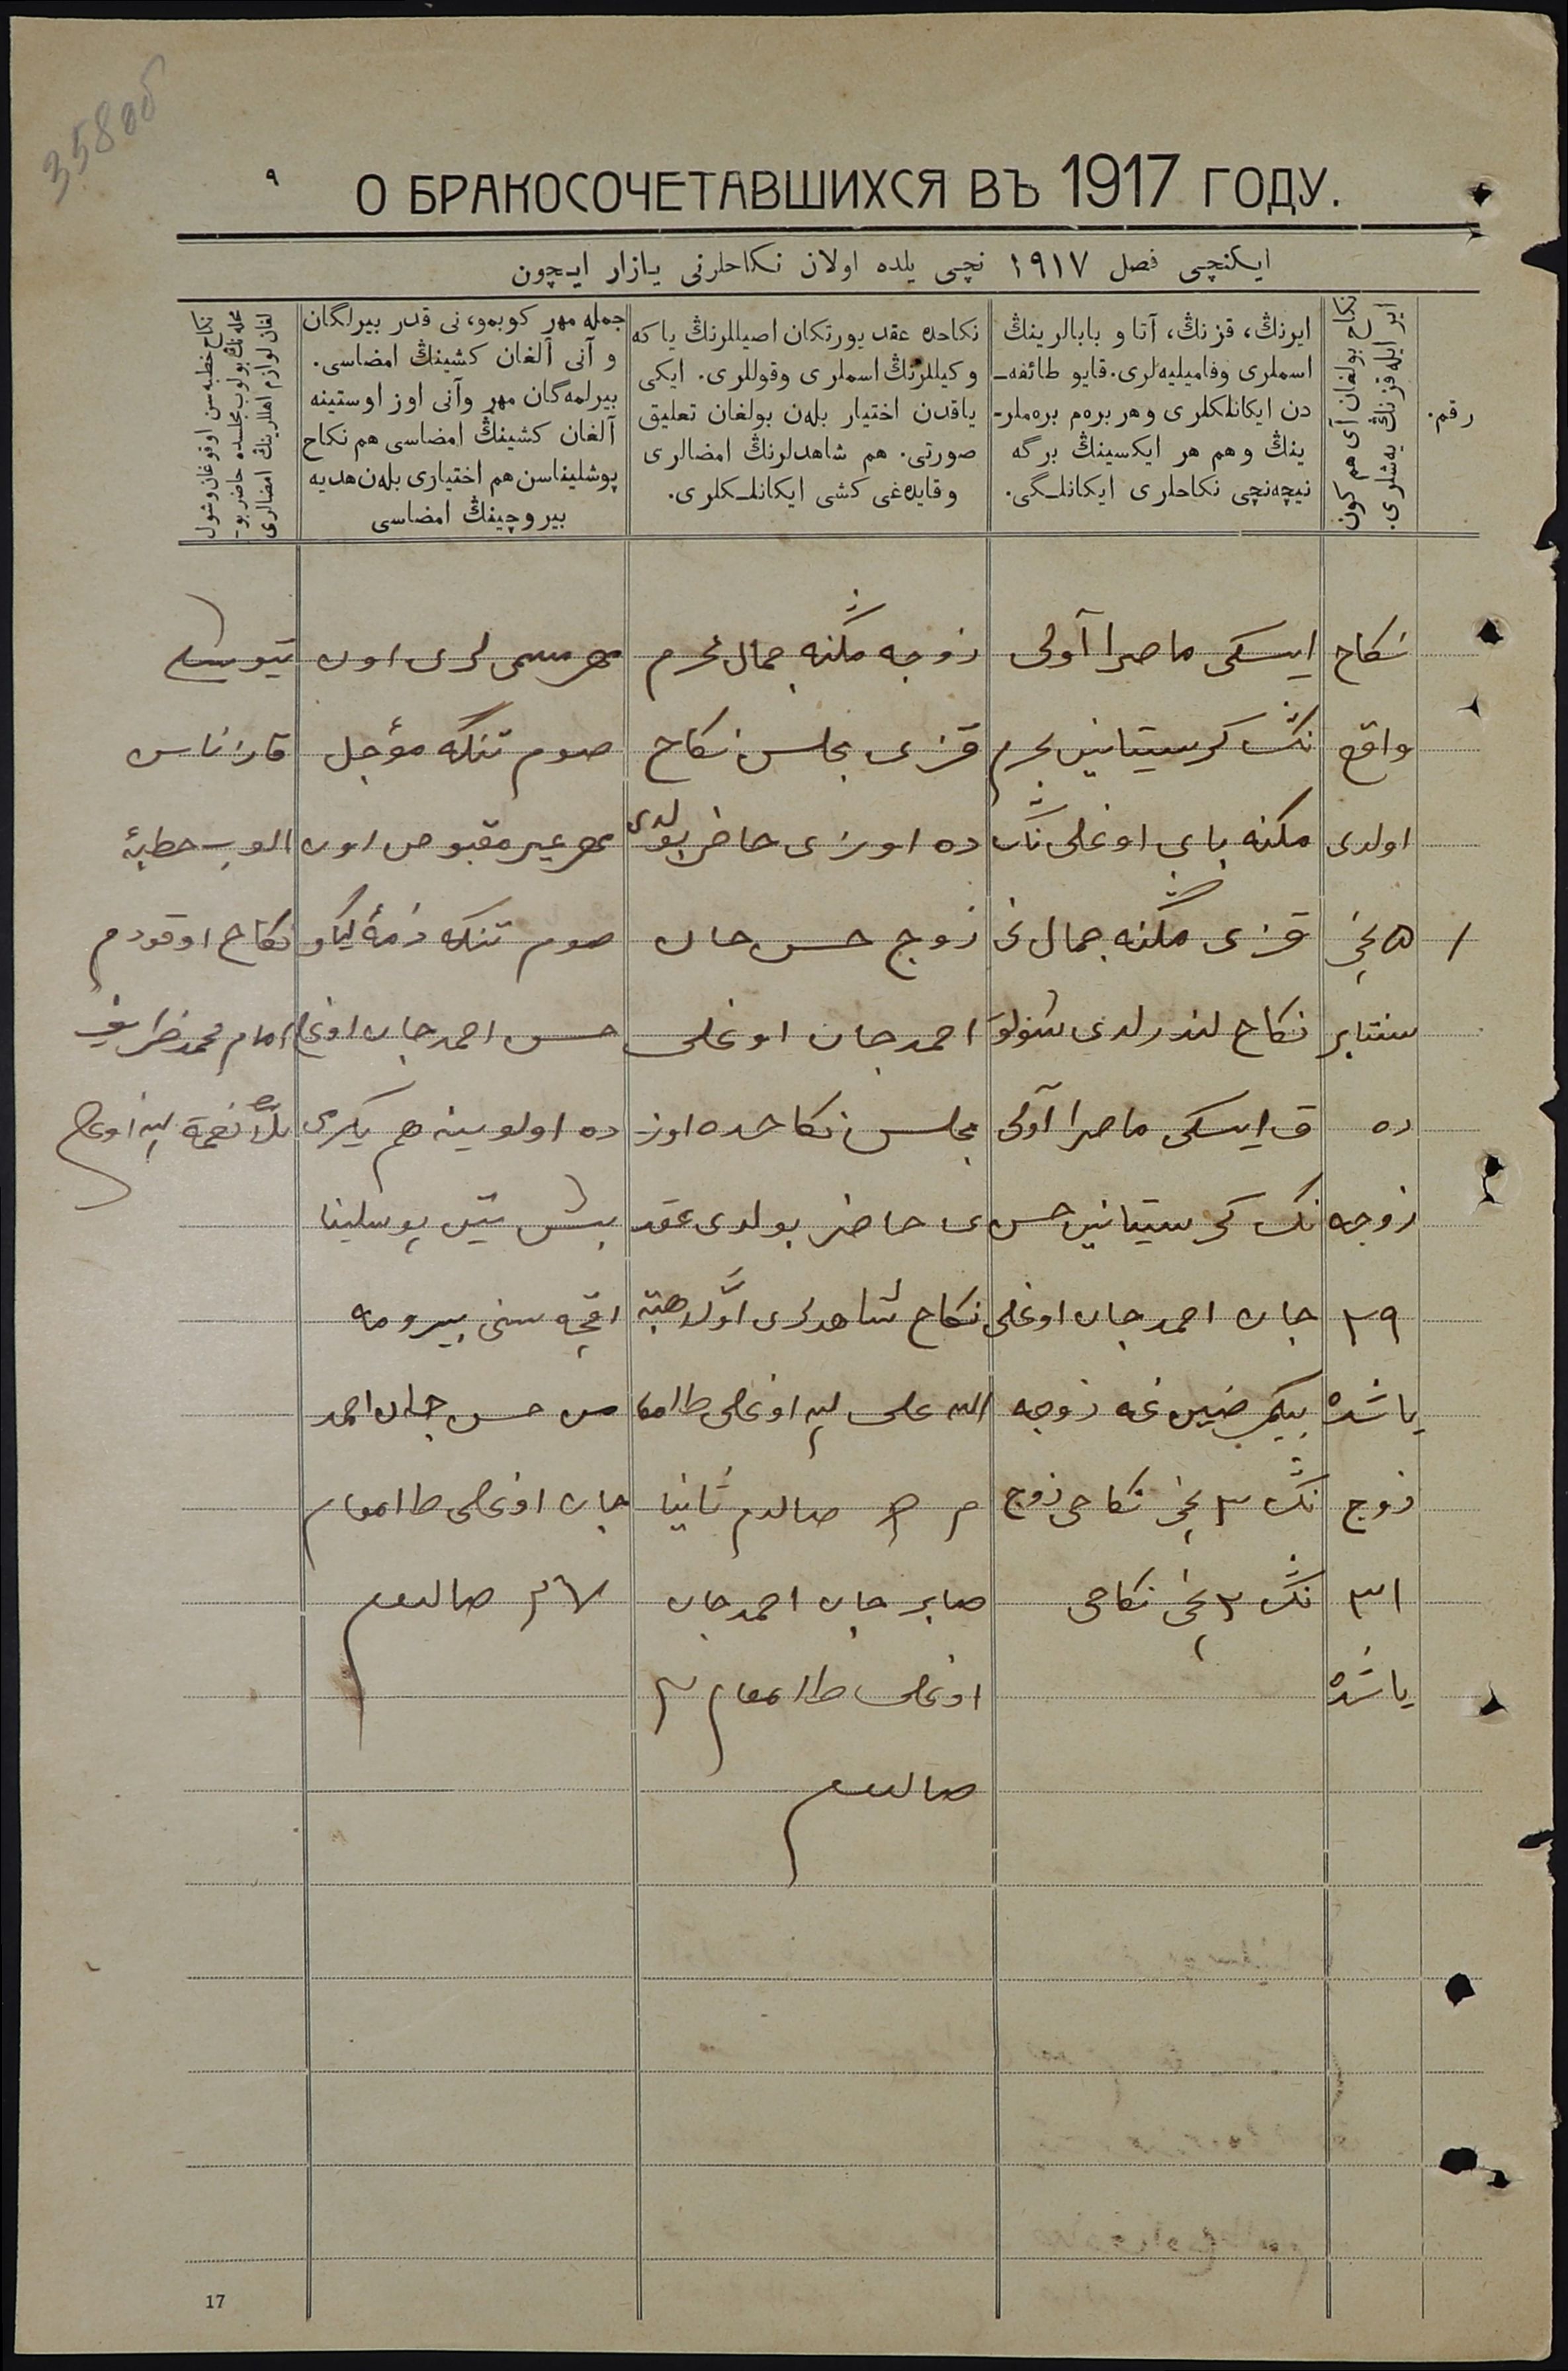 358об
٩
О БРАКОСОЧЕТАВШИХСЯ ВЪ 1917 ГОДУ.
ایکنچی فصل ١٩١٧ نچی یلده اولان نکاحلرنی یازار ایچون
رقم.
نکاح بولغان آی هم کون
ایر ایله قزنڭ یەشلری.
ایرنڭ، قزنڭ، آتا و بابالرینڭ
اسملری وفامیلیەلری. قایو طائفه‌ـ
دن ایکانلکلری وهر برەم برەملر-
ینڭ وهم هر ایکسینڭ برگه
نیچەنچی نکاحلری ایکانلـگی.
نکاحده عقد یورتکان اصیللرنڭ یا که
وکیللرنڭ اسملری وقوللری. ایکی
یاقدن اختیار بلەن بولغان تعلیق
صورتی. هم شاهدلرنڭ امضالری
وقایدەغی کشی ایکانلـکلری.
جمله مهر کوبمو، نی قدر بیرلگان
و آنی آلغان کشینڭ امضاسی.
بیرلمەگان مهر وآنی اوز اوستینه
آلغان کشینڭ امضاسی هم نکاح
پوشلیناسن هم اختیاری بلەن هدیه
بیروچینڭ امضاسی
نکاح خطبه‌سن اوقوغان وشول
محله‌نڭ بولوب مجلسده حاضر بو-
لغان لوازم اهللرینڭ امضالری
١
نکاح
واقع
اولدی
٥ نچی
سنتابر
ده
زوجه
٢٩
یاشده
زوج
٣١
یاشده
ایسکی ماصرا آولی
نڭ کرستیانین محرم
مکنه بای اوغلی نڭ
قزی مڭنه جمال نی
نکاح لندرلدی شولوق
ایسکی ماصرا آولی
نڭ کرستیانین حسن
جان احمد جان اوغلی
بیکمرضین غه زوجه
نڭ ٢ نچی نکاحی زوج
نڭ ٢ نچی نکاحی
زوجه مڭنه جمال محرم
قزی مجلس نکاح
ده اوزی حاضر بولدی
زوج حسن جان
احمد جان اوغلی
مجلس نکاحده اوز
ی حاضر بولدی عقد
نکاح شاهدلری اوّلا هبة
الله علی اوغلی طامغام
صالدم ثانیا
صابر جان احمد جان
اوغلی طامغام
صالدم
مهر مسمی لری اون
صوم تنکه مؤجل
مهر غیر مقبوض اون
صوم تنکه ذمۀ
حسن احمد جان اوغلی
ده اولوینه هم یکرمی
بیش تین پوسلینا
اقچه سنی بیرومه
من حسن جان احمد
جان اوغلی طامغام
صالدم
تیوشلی
قاراناس
الوب خطبۀ
نکاح اوقودم
امام محمدظریف
ملا نعمة الله اوغلی
17